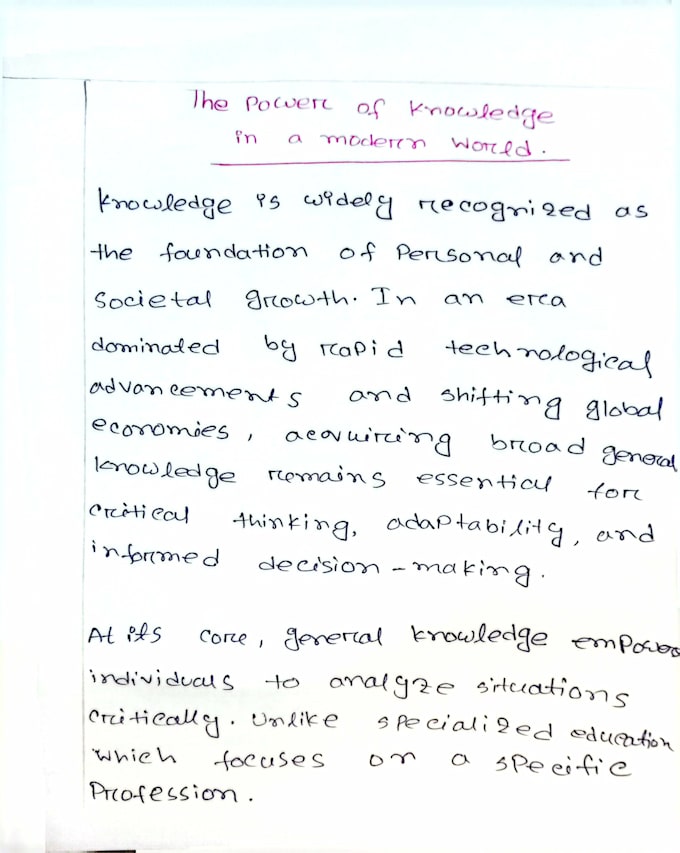 The Power of Knowledge
in a modern World.
Knowledge is widely recognized as
the foundation of Personal and
Societal growth. In an era
dominated by rapid technological
advancements and shifting global
economies, acquiring broad general
knowledge remains essential for
critical thinking, adaptability, and
informed decision-making.
At its core, general knowledge empowers
individuals to analyze situations
critically. Unlike specialized education
which focuses on a specific
Profession.